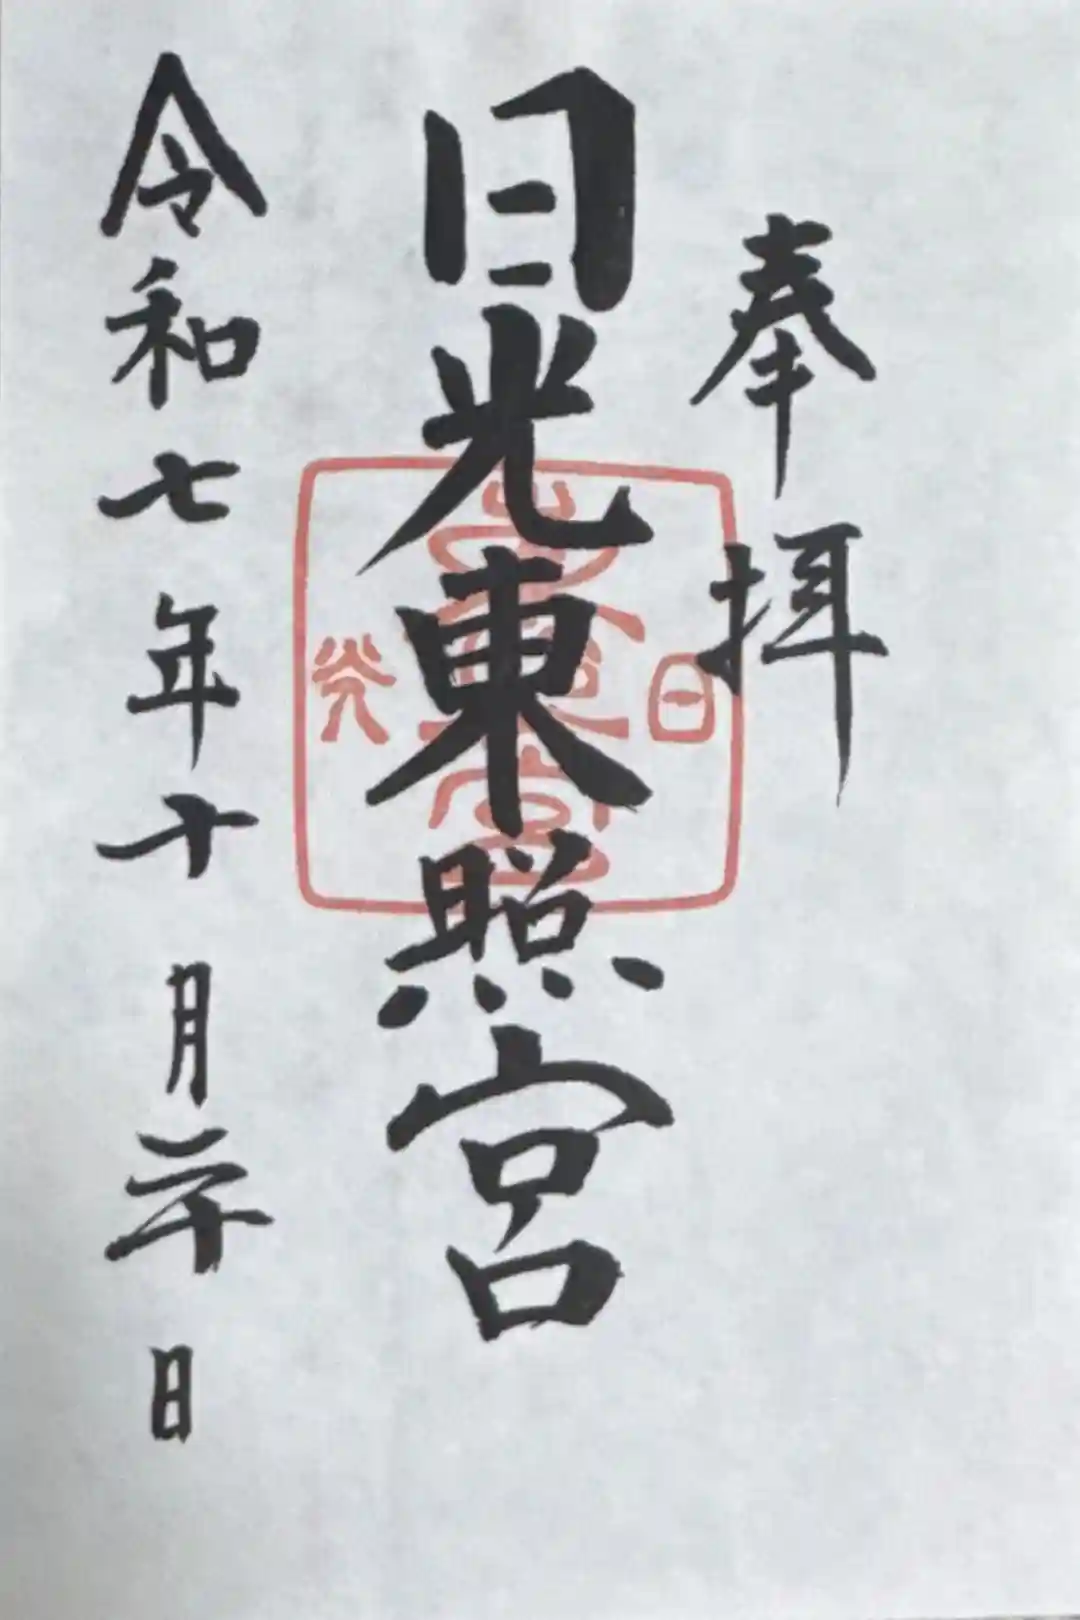 奉拝
日光東照宮
令和七年十月二十日
日光
東照宮